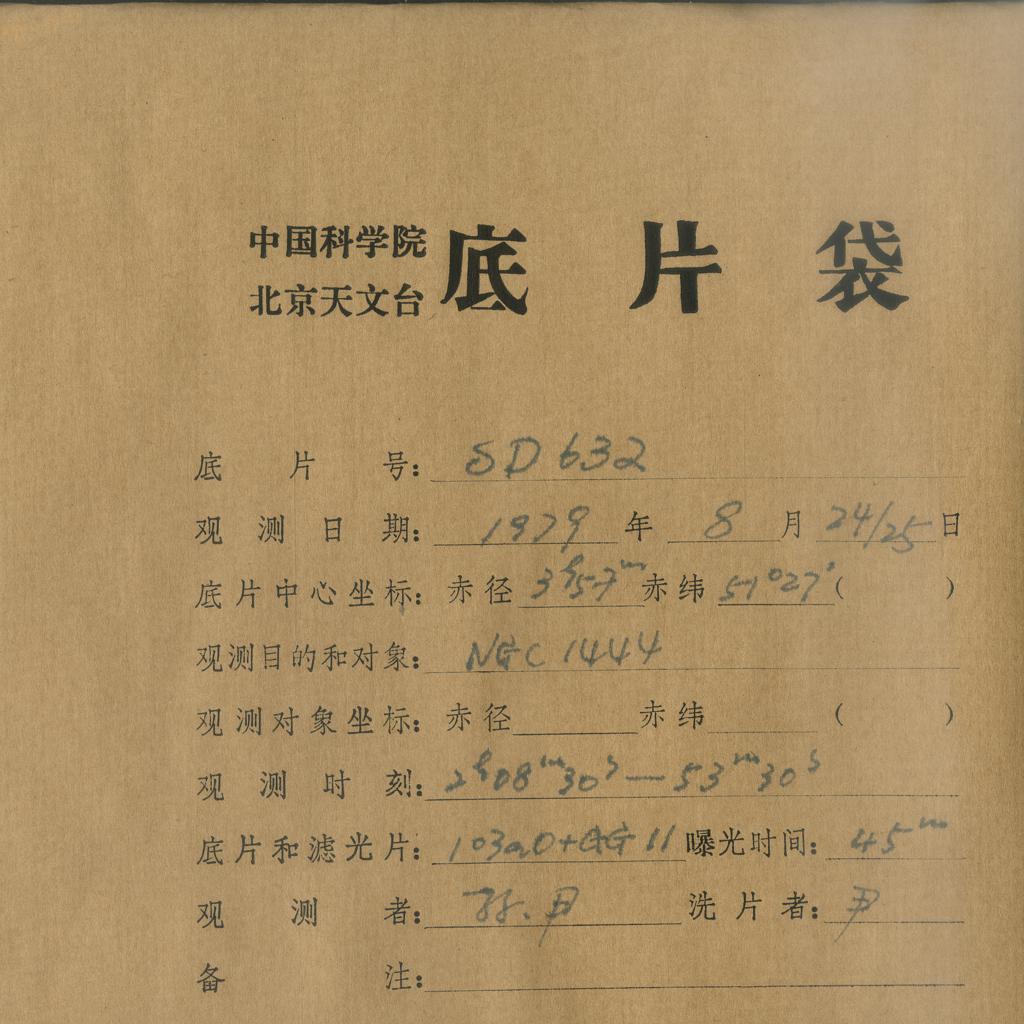 中国科学院
北京天文台 底片袋
底片号: SD 632
观测日期: 1979 年 8 月 24/25 日
底片中心坐标: 赤径 3h57m 赤纬 51°27′ ( )
观测目的和对象: NGC 1444
观测对象坐标: 赤径 赤纬 ( )
观测时刻: 2h08m30s — 53m30s
底片和滤光片: 103aO+GG 11 曝光时间: 45m
观测者: 孙.尹 洗片者: 尹
备注: